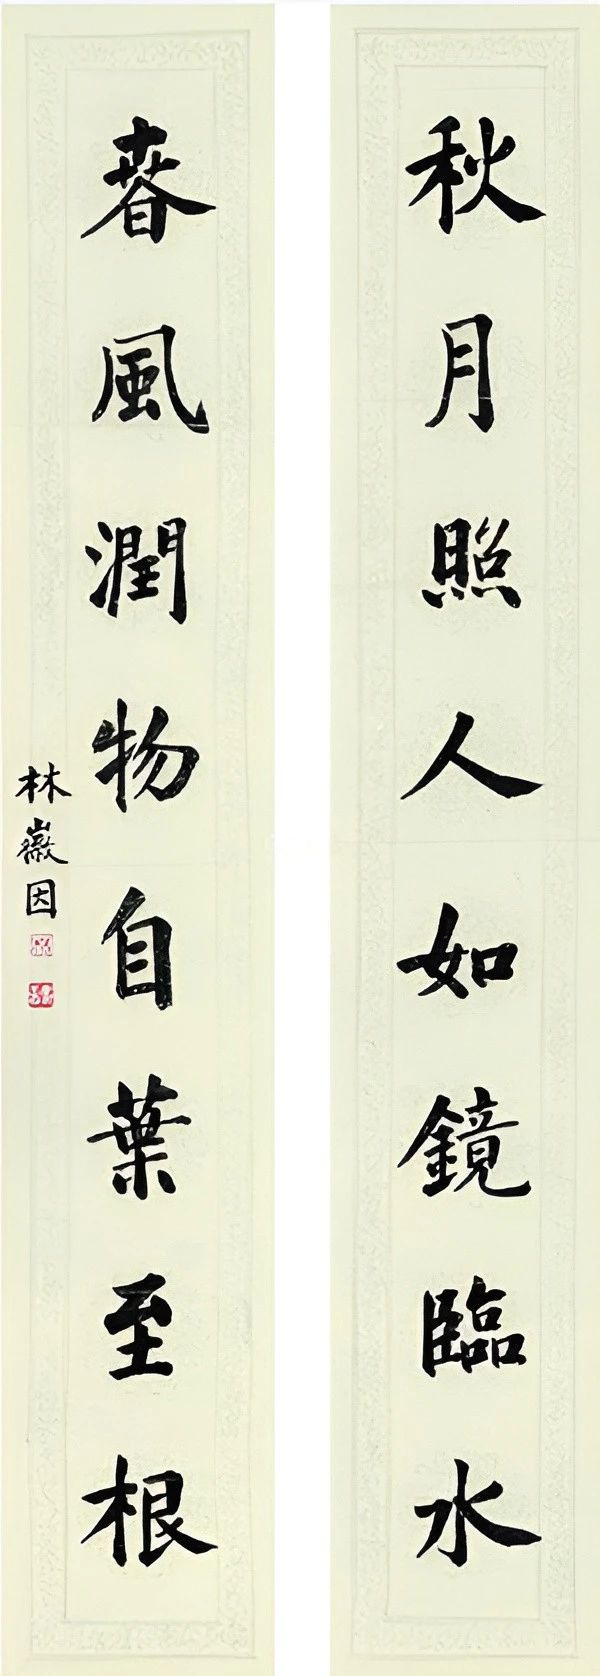 秋月照人如鏡臨水
春風潤物自葉至根
林徽因